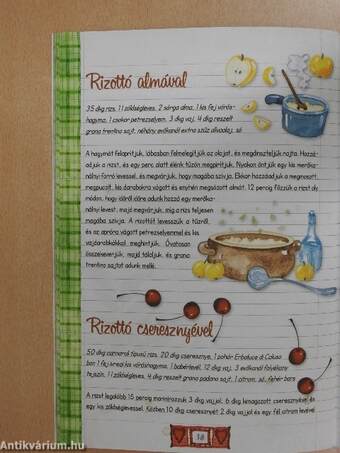 Rizottó almával
35 dkg rizs, 1 l zöldségleves, 2 sárga alma, 1 kis fej vörös-
hagyma, 1 csokor petrezselyem, 3 dkg vaj, 4 dkg reszelt
grana trentino sajt, néhány evőkanál extra szűz olívaolaj, só
A hagymát felaprítjuk, lábosban felmelegítjük az olajat, és megdinszteljük rajta. Hozzáad-
juk a rizst, és egy perc alatt élénk tűzön megpirítjuk. Nyakon öntjük egy kis merőka-
nálnyi forró levessel, és megvárjuk, hogy magába szívja. Ekkor hozzáadjuk a megmosott,
megpucolt, kis darabokra vágott és enyhén megsózott almát. 12 percig főzzük a rizst oly
módon, hogy időről időre adunk hozzá egy merőka-
nálnyi levest, majd megvárjuk, míg a rizs teljesen
magába szívja. A rizottót levesszük a tűzről,
és az apróra vágott petrezselyemmel és kis
vajdarabkákkal meghintjük. Óvatosan
összekeverjük, majd tálaljuk, és grana
trentino sajtot adunk mellé.
Rizottó cseresznyével
50 dkg carnaroli típusú rizs, 20 dkg cseresznye, 1 pohár Erbaluce di Caluso
bor, 1 fej kreolias vöröshagyma, 1 babérlevél, 12 dkg vaj, 3 evőkanál folyékony
tejszín, 1 l zöldségleves, 4 dkg reszelt grana padano sajt, 1 citrom, só, fehér bors
A rizst legalább 15 percig marinírozzuk 3 dkg vajjal, 6 dkg kimagozott cseresznyével és
egy kis zöldséglevessel. Közben 10 dkg cseresznyét 2 dkg vajjal és egy fél citrom levével
18
antikvárium.hu